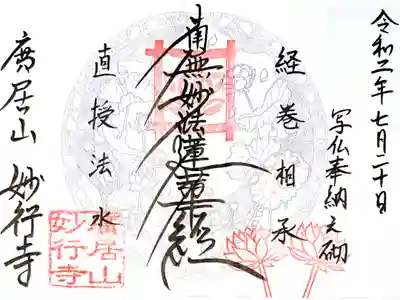 令和二年七月二十日
写仏奉納之砌
経巻相承
南無妙法蓮華経
直授法水
廣居山 妙行寺
廣居山
妙行寺